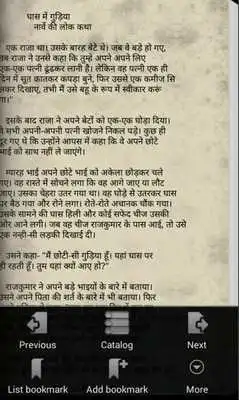 घास में गुड़िया
नार्वे की लोक कथा
एक राजा था। उसके बारह बेटे थे। जब वे बड़े हो गए,
तब राजा ने उनसे कहा कि तुम्हे अपने अपने लिए
एक-एक पत्नी ढूंढकर लानी है। लेकिन वह पत्नी एक ही
दिन में सूत कातकर कपड़ा बुने, फिर उससे एक कमीज सि
लकर दिखाए, तभी मैं उसे बहू के रूप में स्वीकार करूं
गा।"
इसके बाद राजा ने अपने बेटों को एक-एक घोड़ा दिया।
वे सभी अपनी-अपनी पत्नी खोजने निकल पड़े। कुछ ही
दूर गए थे कि उन्होंने आपस में कहा कि वे अपने छोटे
भाई को साथ नहीं ले जाएंगे।
ग्यारह भाई अपने छोटे भाई को अकेला छोड़कर चले
गए। वह रास्ते में सोचने लगा कि वह आगे जाए या लौट
जाए। उसका चेहरा उतर गया था। वह घोड़े से उतरकर घास
पर बैठ गया और रोने लगा। रोते-रोते अचानक चौंक गया।
उसके सामने की घास हिली और कोई सफेद चीज उसकी
ओर आने लगी। जब वह चीज राजकुमार के पास आई, तो उसे
एक नन्ही-सी लड़की दिखाई दी।
उसने कहा- "मैं छोटी-सी गुड़िया हूँ। यहां घास पर
ही रहती हूँ। तुम यहां क्यों आए हो?"
राजकुमार ने अपने बड़े भाइयों के बारे में बताया।
उसने अपने पिता की शर्त के बारे में भी बताया। फिर
Previous
Catalog
Next
List bookmark
Add bookmark
More